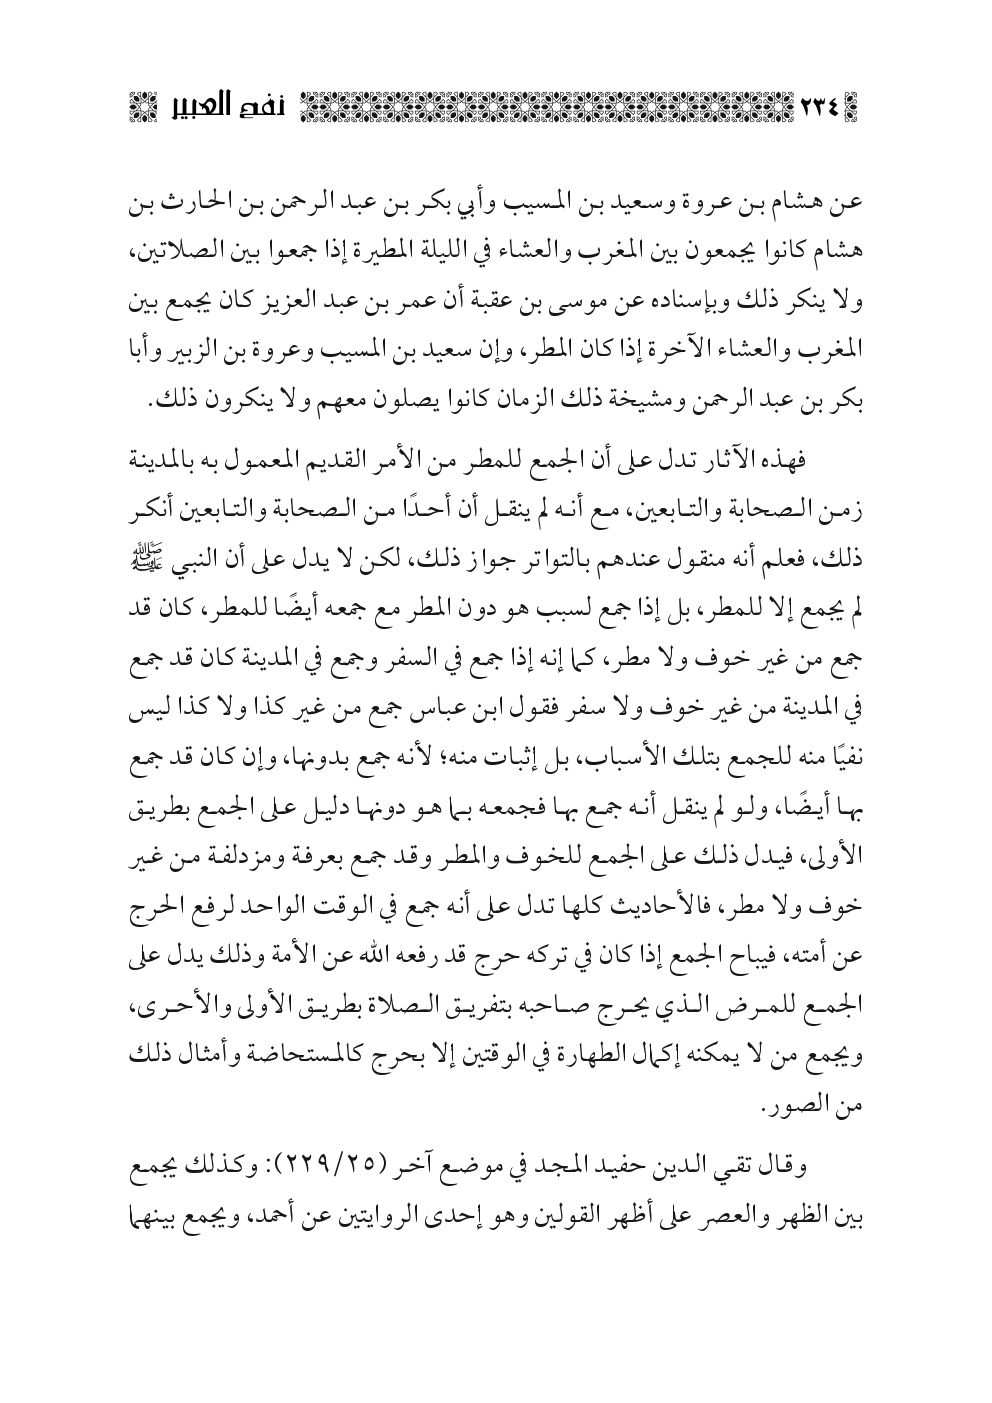 ٢٣٤ نفح العبير
عن هشام بن عروة وسعيد بن المسيب وأبي بكر بن عبد الرحمن بن الحارث بن
هشام كانوا يجمعون بين المغرب والعشاء في الليلة المطيرة إذا جمعوا بين الصلاتين،
ولا ينكر ذلك وبإسناده عن موسى بن عقبة أن عمر بن عبد العزيز كان يجمع بين
المغرب والعشاء الآخرة إذا كان المطر، وإن سعيد بن المسيب وعروة بن الزبير وأبا
بكر بن عبد الرحمن ومشيخة ذلك الزمان كانوا يصلون معهم ولا ينكرون ذلك.
فهذه الآثار تدل على أن الجمع للمطر من الأمر القديم المعمول به بالمدينة
زمن الصحابة والتابعين، مع أنه لم ينقل أن أحدًا من الصحابة والتابعين أنكر
ذلك، فعلم أنه منقول عندهم بالتواتر جواز ذلك، لكن لا يدل على أن النبي ﷺ
لم يجمع إلا للمطر، بل إذا جمع لسبب هو دون المطر مع جمعه أيضًا للمطر، كان قد
جمع من غير خوف ولا مطر، كما إنه إذا جمع في السفر وجمع في المدينة كان قد جمع
في المدينة من غير خوف ولا سفر فقول ابن عباس جمع من غير كذا ولا كذا ليس
نفيًا منه للجمع بتلك الأسباب، بل إثبات منه؛ لأنه جمع بدونها، وإن كان قد جمع
بها أيضًا، ولو لم ينقل أنه جمع بها فجمعه بما هو دونها دليل على الجمع بطريق
الأولى، فيدل ذلك على الجمع للخوف والمطر وقد جمع بعرفة ومزدلفة من غير
خوف ولا مطر، فالأحاديث كلها تدل على أنه جمع في الوقت الواحد لرفع الحرج
عن أمته، فيباح الجمع إذا كان في تركه حرج قد رفعه الله عن الأمة وذلك يدل على
الجمع للمرض الذي يحرج صاحبه بتفريق الصلاة بطريق الأولى والأحرى،
ويجمع من لا يمكنه إكمال الطهارة في الوقتين إلا بحرج كالمستحاضة وأمثال ذلك
من الصور.
وقال تقي الدين حفيد المجد في موضع آخر (٢٢٩/٢٥): وكذلك يجمع
بين الظهر والعصر على أظهر القولين وهو إحدى الروايتين عن أحمد، ويجمع بينهما